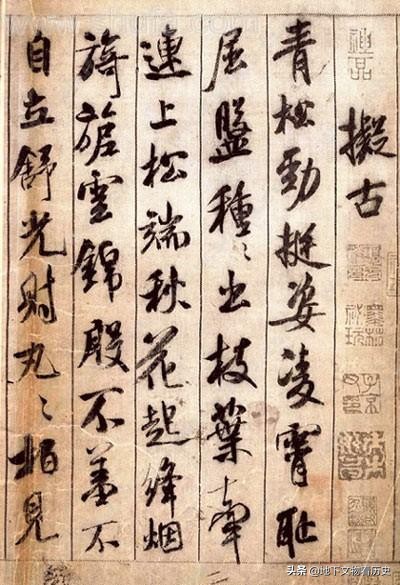 神品
擬古
青松勁挺姿凌霄耻
屈盤種〻出枝葉牽
連上松端秋花起絳烟
旖旎雲錦殷不羞不
自立舒光射丸〻柏見
头条 @地下文物看历史